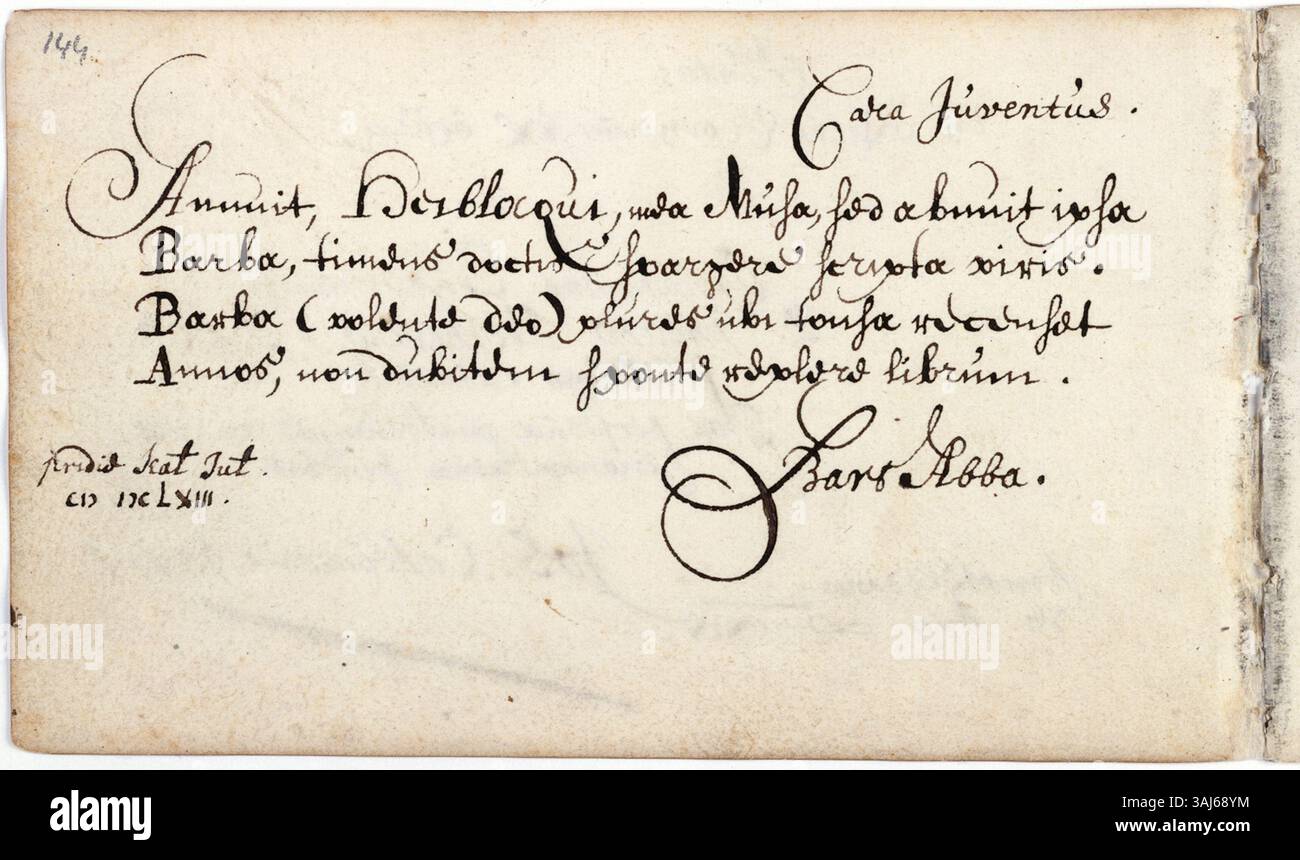 144.
Cara Juventus.
Annuit, Herbloqui, mea Musa, sed abnuit ipsa
Barba, timens doctis spargere scripta viris.
Barba (volente deo) plures ubi tonsa recenset
Annos, non dubitem sponte replere librum.
Bars Abba.
pridie Kal Jul.
CIↃ IↃCLXIII.
alamy
www.alamy.com
Image ID: 3AJ68YM